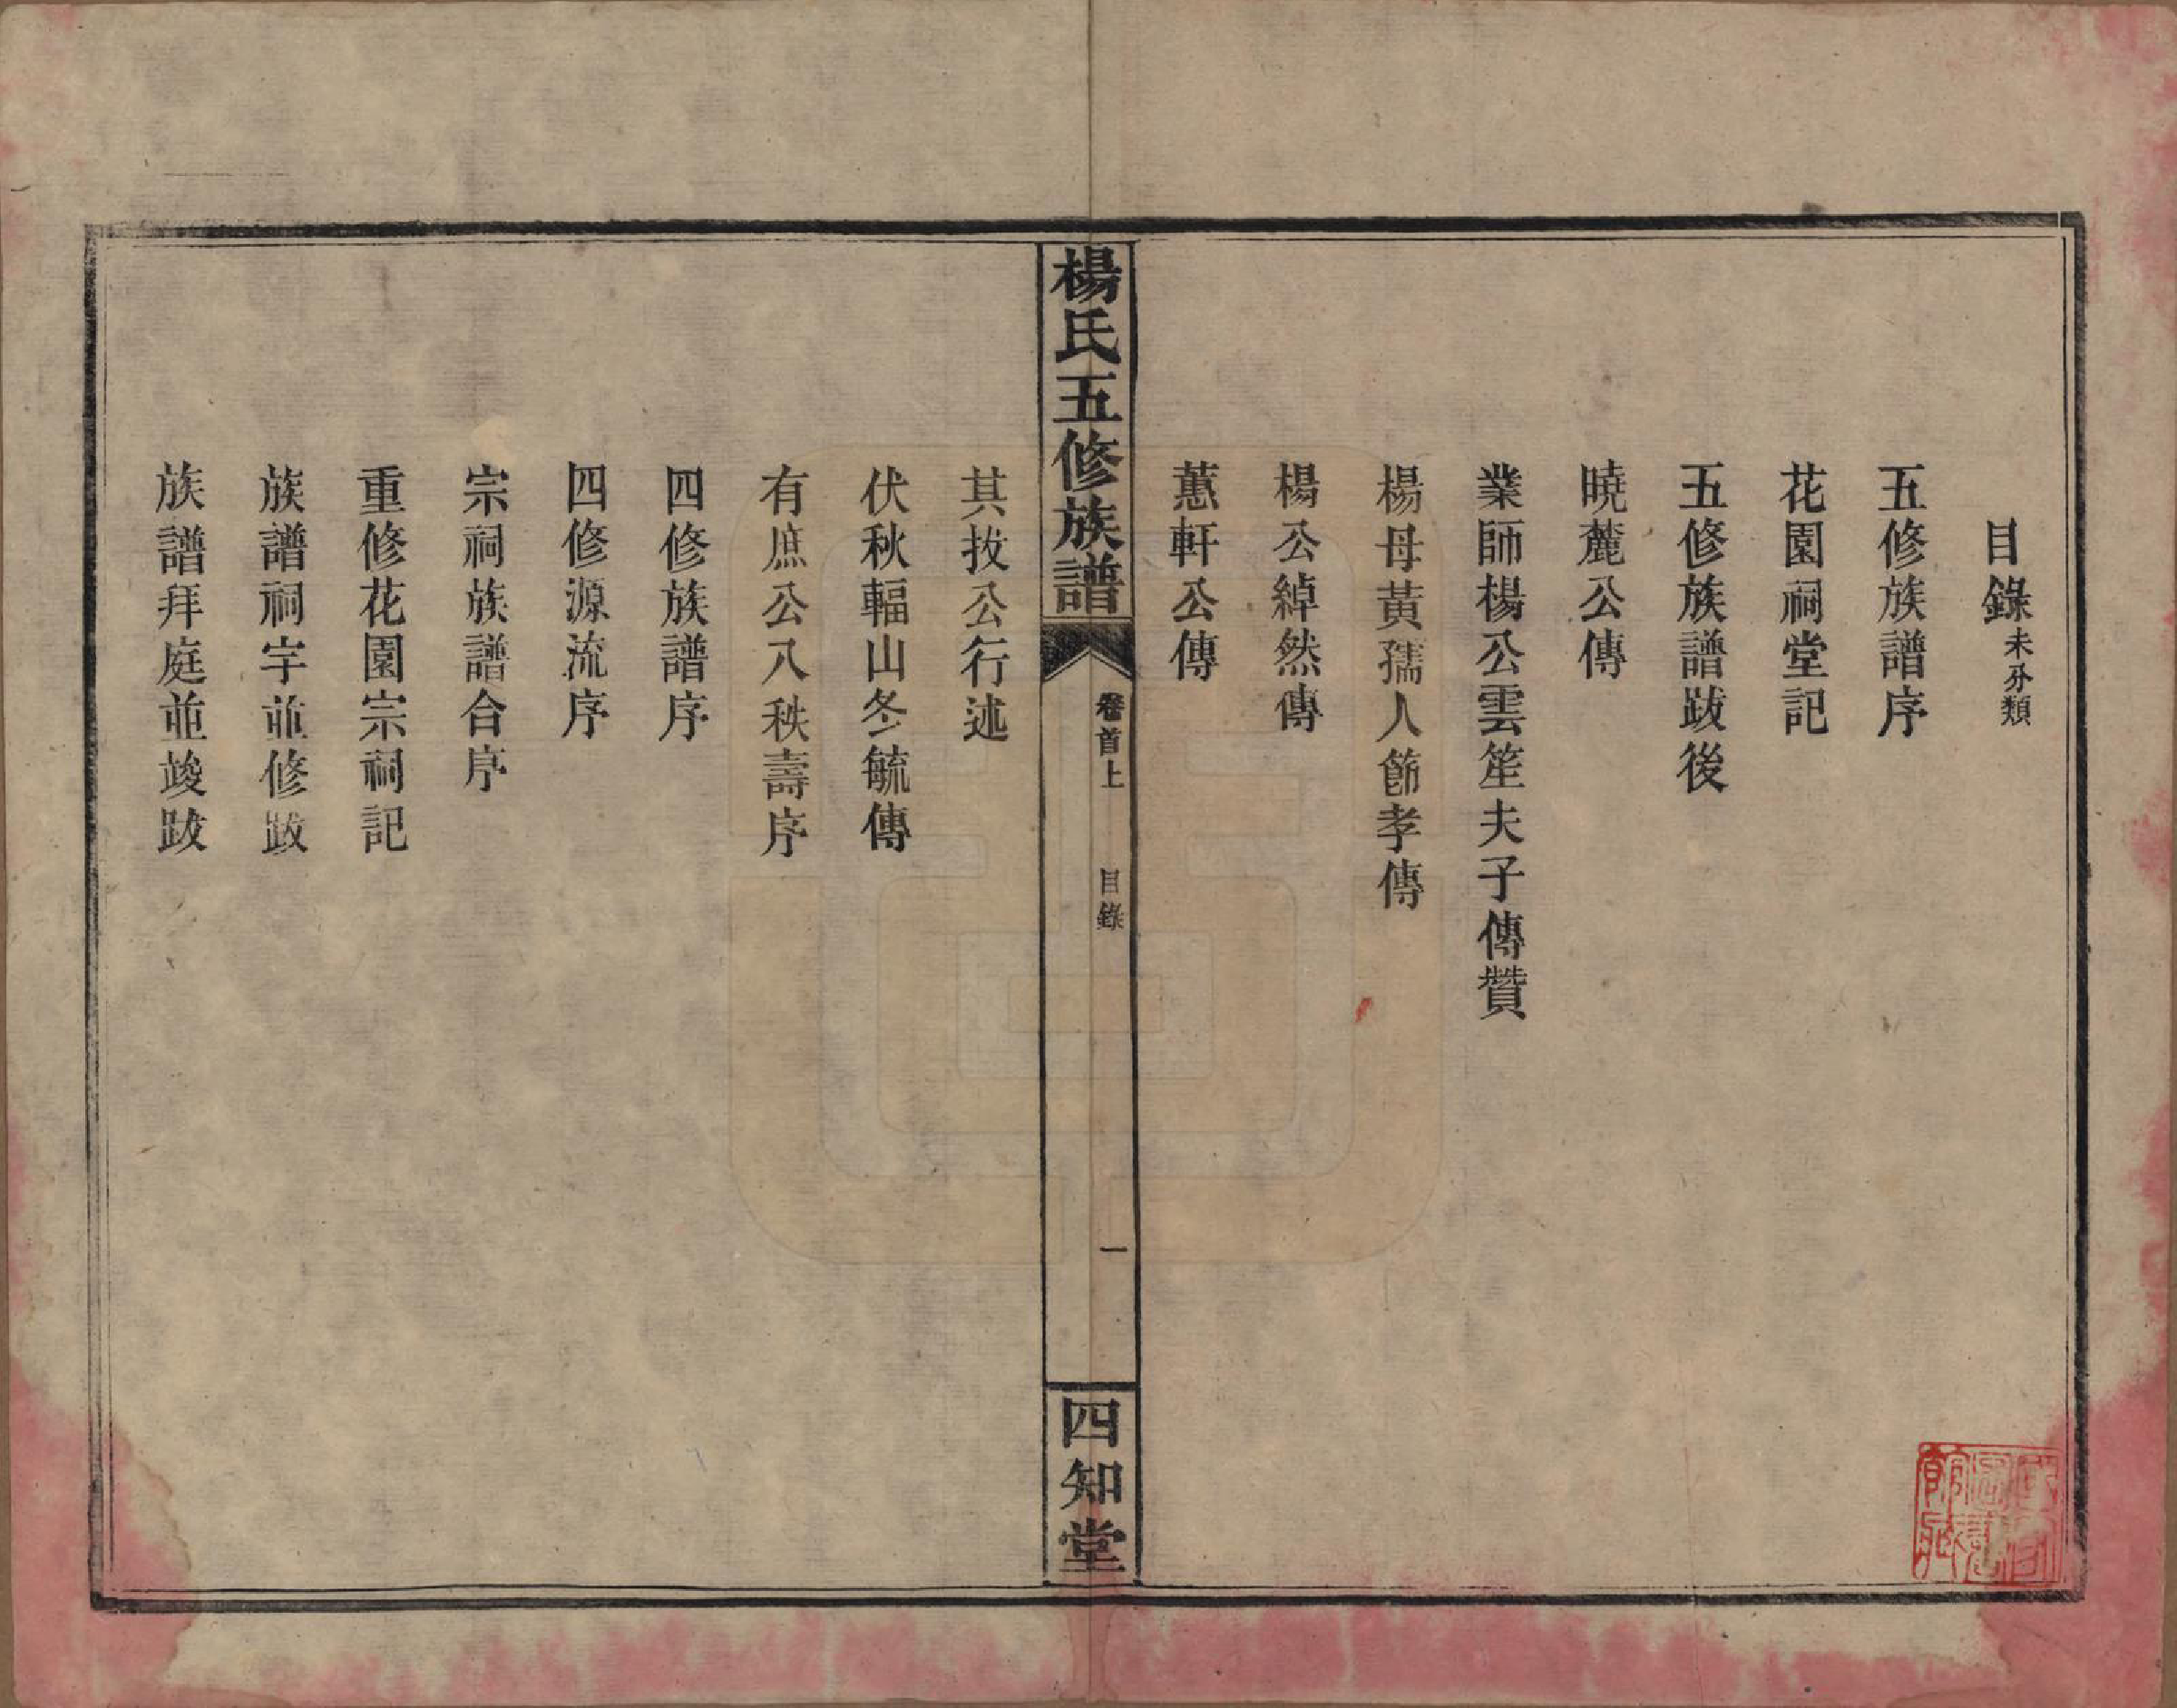 目錄未分類
五修族譜序
花園祠堂記
五修族譜跋後
曉麓公傳
業師楊公雲笙夫子傳贊
楊母黃孺人節孝傳
楊公綽然傳
蕙軒公傳
楊氏五修族譜
卷首上
目錄
一
四知堂
其拔公行述
伏秋輻山冬毓傳
有庶公八秩壽序
四修族譜序
四修源流序
宗祠族譜合序
重修花園宗祠記
族譜祠宇並修跋
族譜拜庭並竣跋